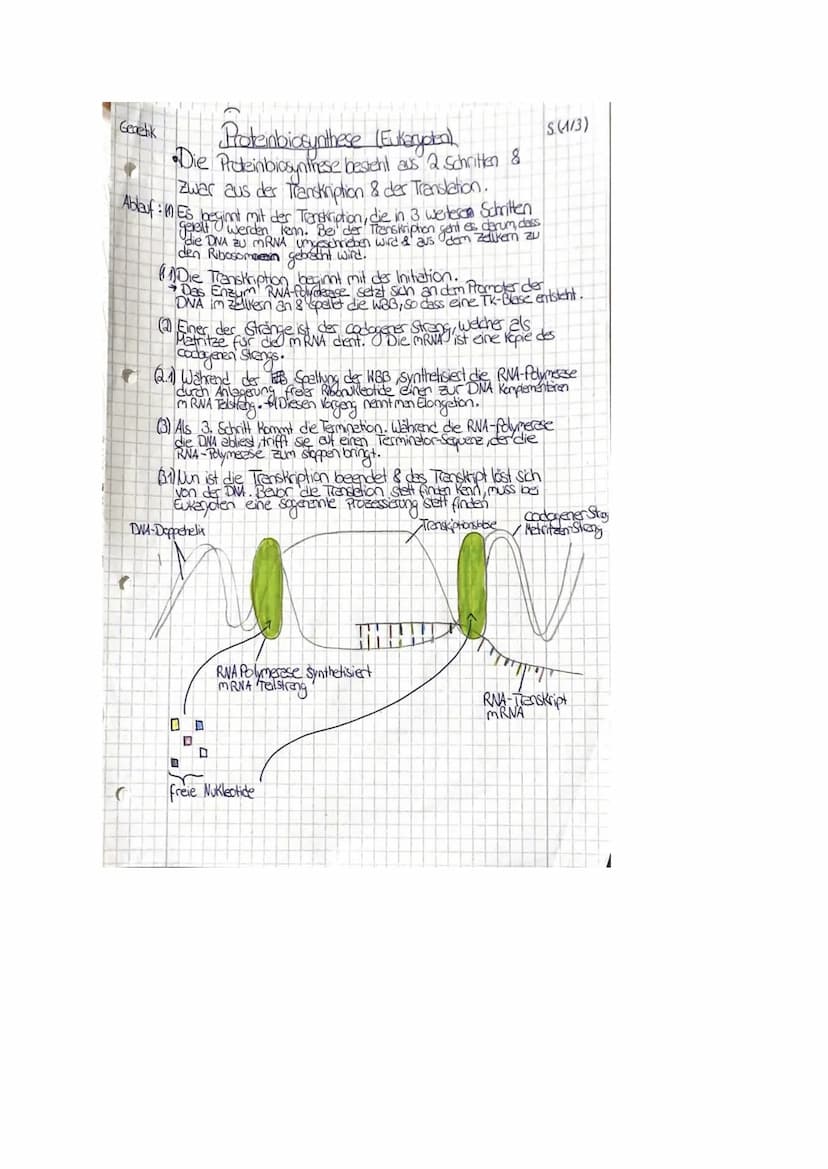 Genetik
Proteinbiosynthese (Eukaryoten)
S.(1/3)
•Die Proteinbiosynthese besteht aus 2 Schritten &
zwar aus der Transkription & der Translation.
Ablauf: (1) Es beginnt mit der Transkription, die in 3 weiteren Schritten
geteilt werden kann. Bei der Transkription geht es darum, dass
die DNA zu mRNA umgeschrieben wird & aus dem Zellkern zu
den Ribosomen gebracht wird.
(1.1) Die Transkription beginnt mit der Initiation.
→ Das Enzym RNA-Polymerase setzt sich an dem Promoter der
DNA im Zellkern an & spaltet die WBB, so dass eine TK-Blase entsteht.
(2) Einer der Stränge ist der codogener Strang, welcher als
Matritze für die mRNA dient. Die mRNA ist eine Kopie des
codogenen Strangs.
(2.1) Während der Spaltung der WBB, synthetisiert die RNA-Polymerase
durch Anlagerung freier Ribonukleotide einen zur DNA komplementären
mRNA Teilstrang. Diesen Vorgang nennt man Elongation.
(3) Als 3. Schritt kommt die Termination. Während die RNA-Polymerase
die DNA abliest, trifft sie auf einen Terminator-Sequenz, der die
RNA-Polymerase zum stoppen bringt.
(3.1) Nun ist die Transkription beendet & das Transkript löst sich
von der DNA. Bevor die Translation statt finden kann, muss bei
Eukaryoten eine sogenannte Prozessierung statt finden
DNA-Doppelhelix
Transkriptionsblase
codogener Strang
Matritzen Strang
RNA Polymerase synthetisiert
mRNA Teilstrang
RNA-Transkript
mRNA
freie Nukleotide